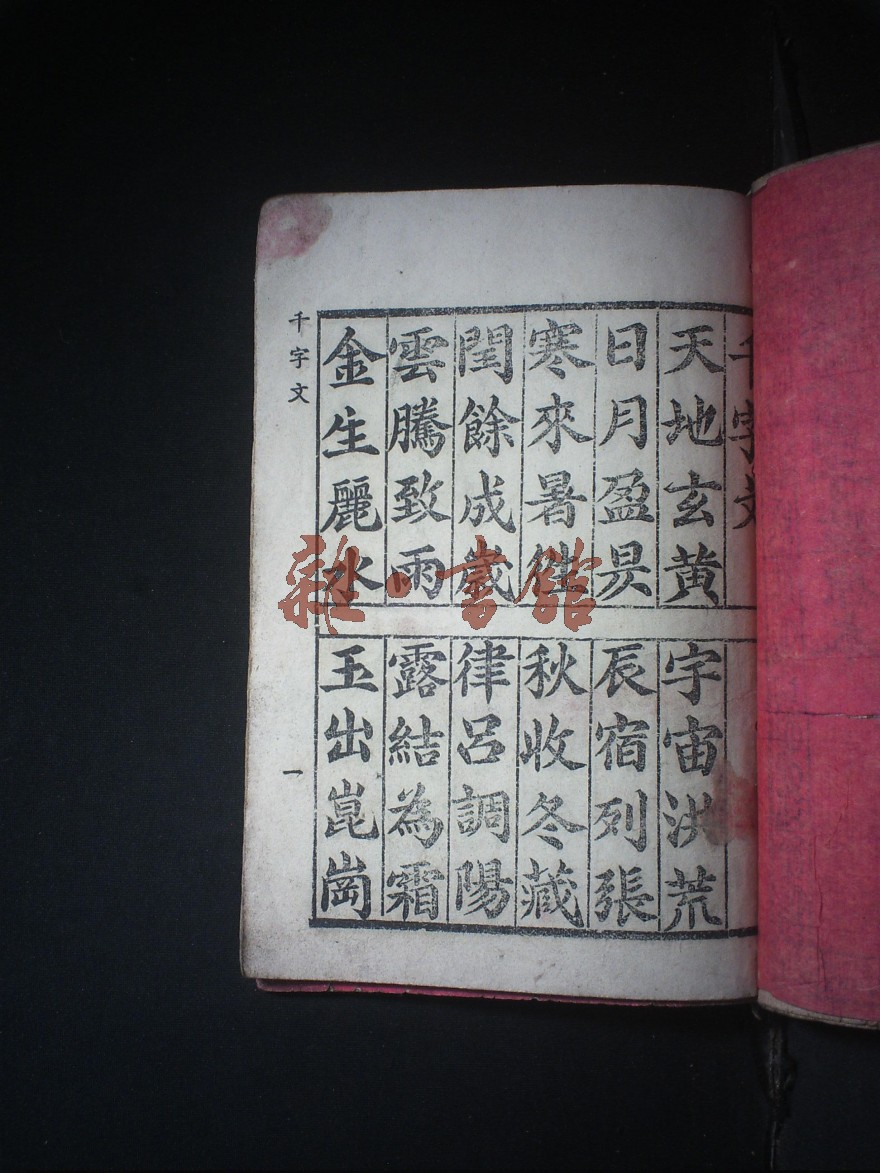 千字文
天地玄黄 宇宙洪荒
日月盈昃 辰宿列張
寒來暑往 秋收冬藏
閏餘成歲 律呂調陽
雲騰致雨 露結為霜
金生麗水 玉出崑崗
千字文
一
雜·書館